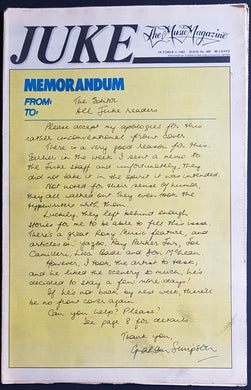 JUKE
The Music Magazine
OCTOBER 2, 1982 ISSUE No. 388 90 CENTS
MEMORANDUM
FROM: The Editor
TO: All Juke readers
Please accept my apologies for this
rather unconventional front cover
There is a very good reason for this.
Earlier in the week I sent a memo to
the Juke staff and unfortunately, they
did not take it in the spirit it was intended.
Not noted for their sense of humor,
they all walked out. They even took the
typewriters with them.
Luckily, they left behind enough
stories for me to be able to fill this issue.
There's a great Roxy Music feature, and
articles on Yazoo, Ray Parker Jnr, Joe
Camilleri, Lisa Bade and Don McLean.
However, I took the artist to task,
and he liked the scenery so much, he's
decided to stay a few more days!
If he's not back by next week, there'll
be no front cover again.
Can you help? Please!
See page 8 for details.
Thank you,
Graham Simpson